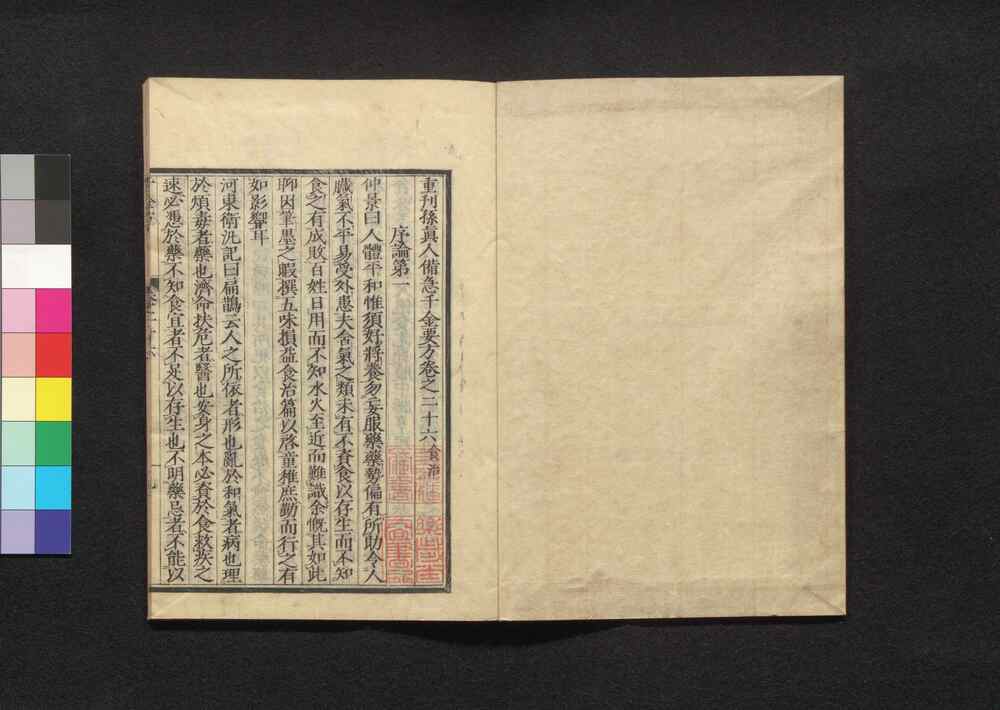 重刋孫眞人備急千金要方卷之二十六食治
序論第一
仲景曰人體平和惟須好將養勿妄服藥藥勢偏有所助令人
臟氣不平易受外患夫含氣之類未有不資食以存生而不知
食之有成敗百姓日用而不知水火至近而難識余慨其如此
聊因筆墨之暇撰五味損益食治篇以啓童稚庶勤而行之有
如影響耳
河東衛汛記曰扁鵲云人之所依者形也亂於和氣者病也理
於煩毒者藥也濟命扶危者醫也安身之本必資於食救疾之
速必慿於藥不知食宜者不足以存生也不明藥忌者不能以